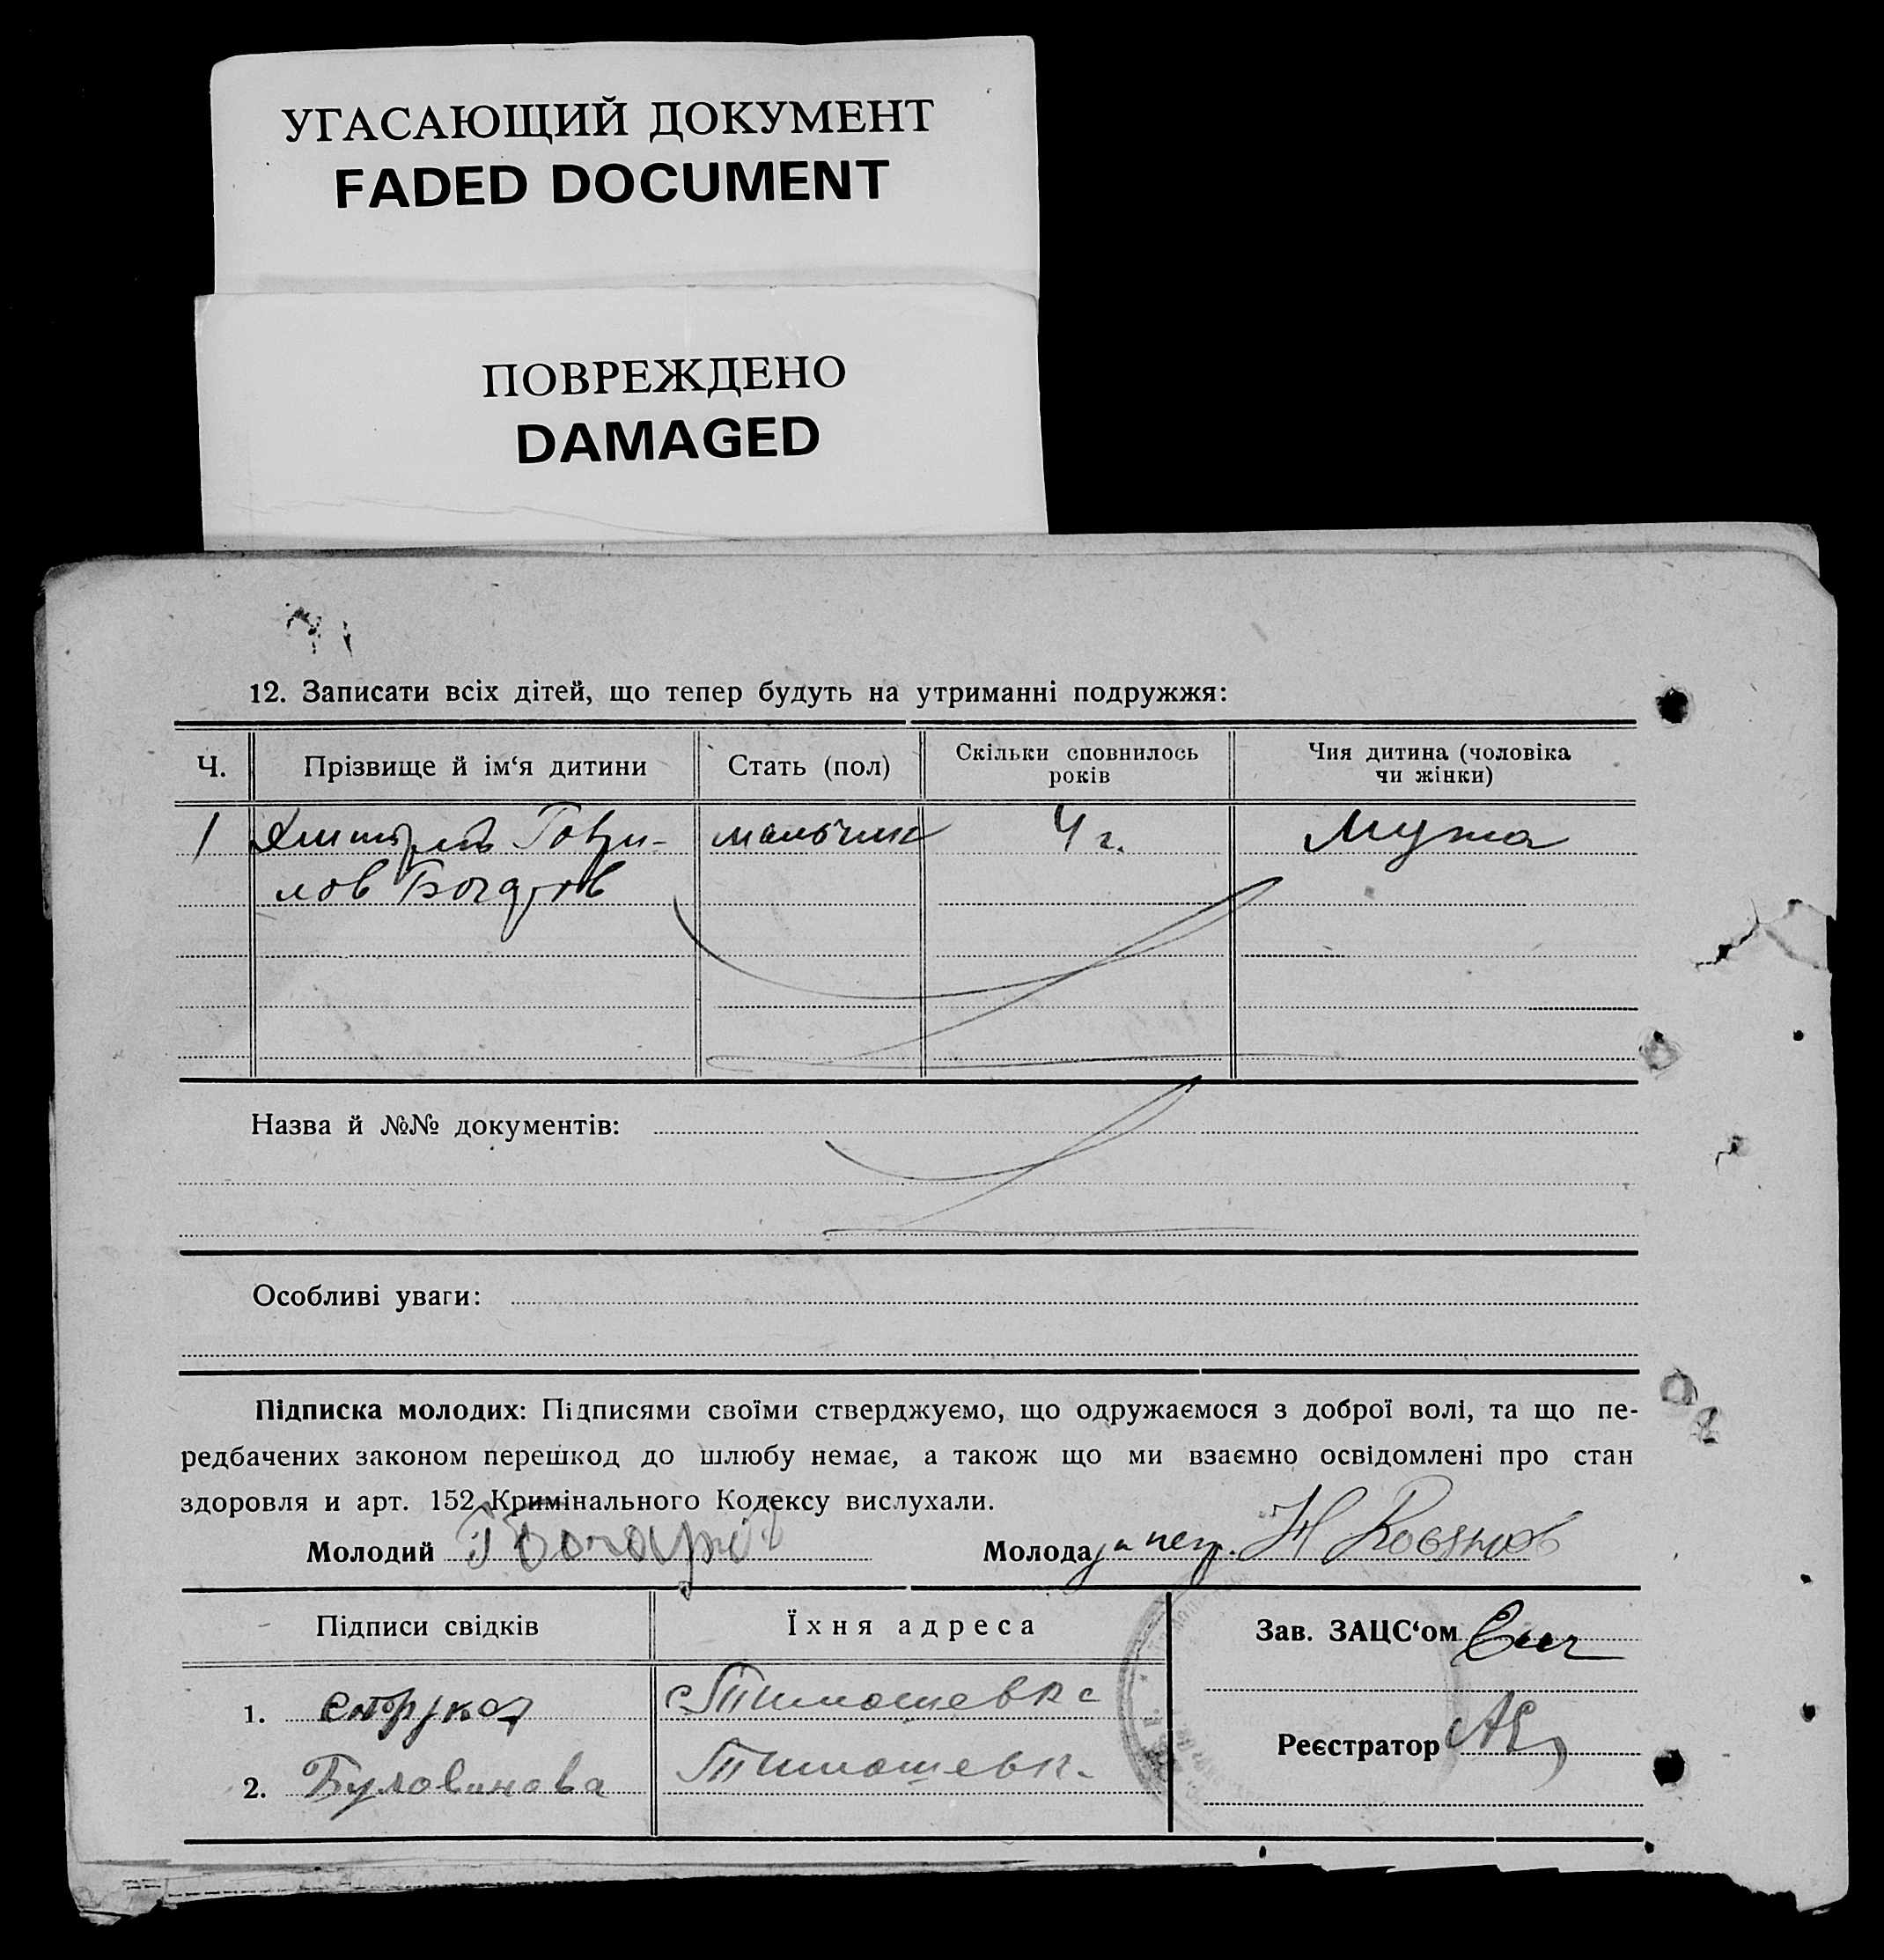 УГАСАЮЩИЙ ДОКУМЕНТ
FADED DOCUMENT
ПОВРЕЖДЕНО
DAMAGED
12. Записати всіх дітей, що тепер будуть на утриманні подружжя:
Ч. Прізвище й ім‘я дитини Стать (пол) Скільки сповнилось років Чия дитина (чоловіка чи жінки)
1 Гаври- мальчик 4 г. Мужа
лов
Назва й №№ документів:
Особливі уваги:
Підписка молодих: Підписями своїми стверджуємо, що одружаємося з доброї волі, та що пе-
редбачених законом перешкод до шлюбу немає, а також що ми взаємно освідомлені про стан
здоровля и арт. 152 Кримінального Кодексу вислухали.
Молодий Молода
Підписи свідків Їхня адреса Зав. ЗАЦС‘ом
1. с Тимошевка
Реєстратор
2. Буловинова Тимошевк.